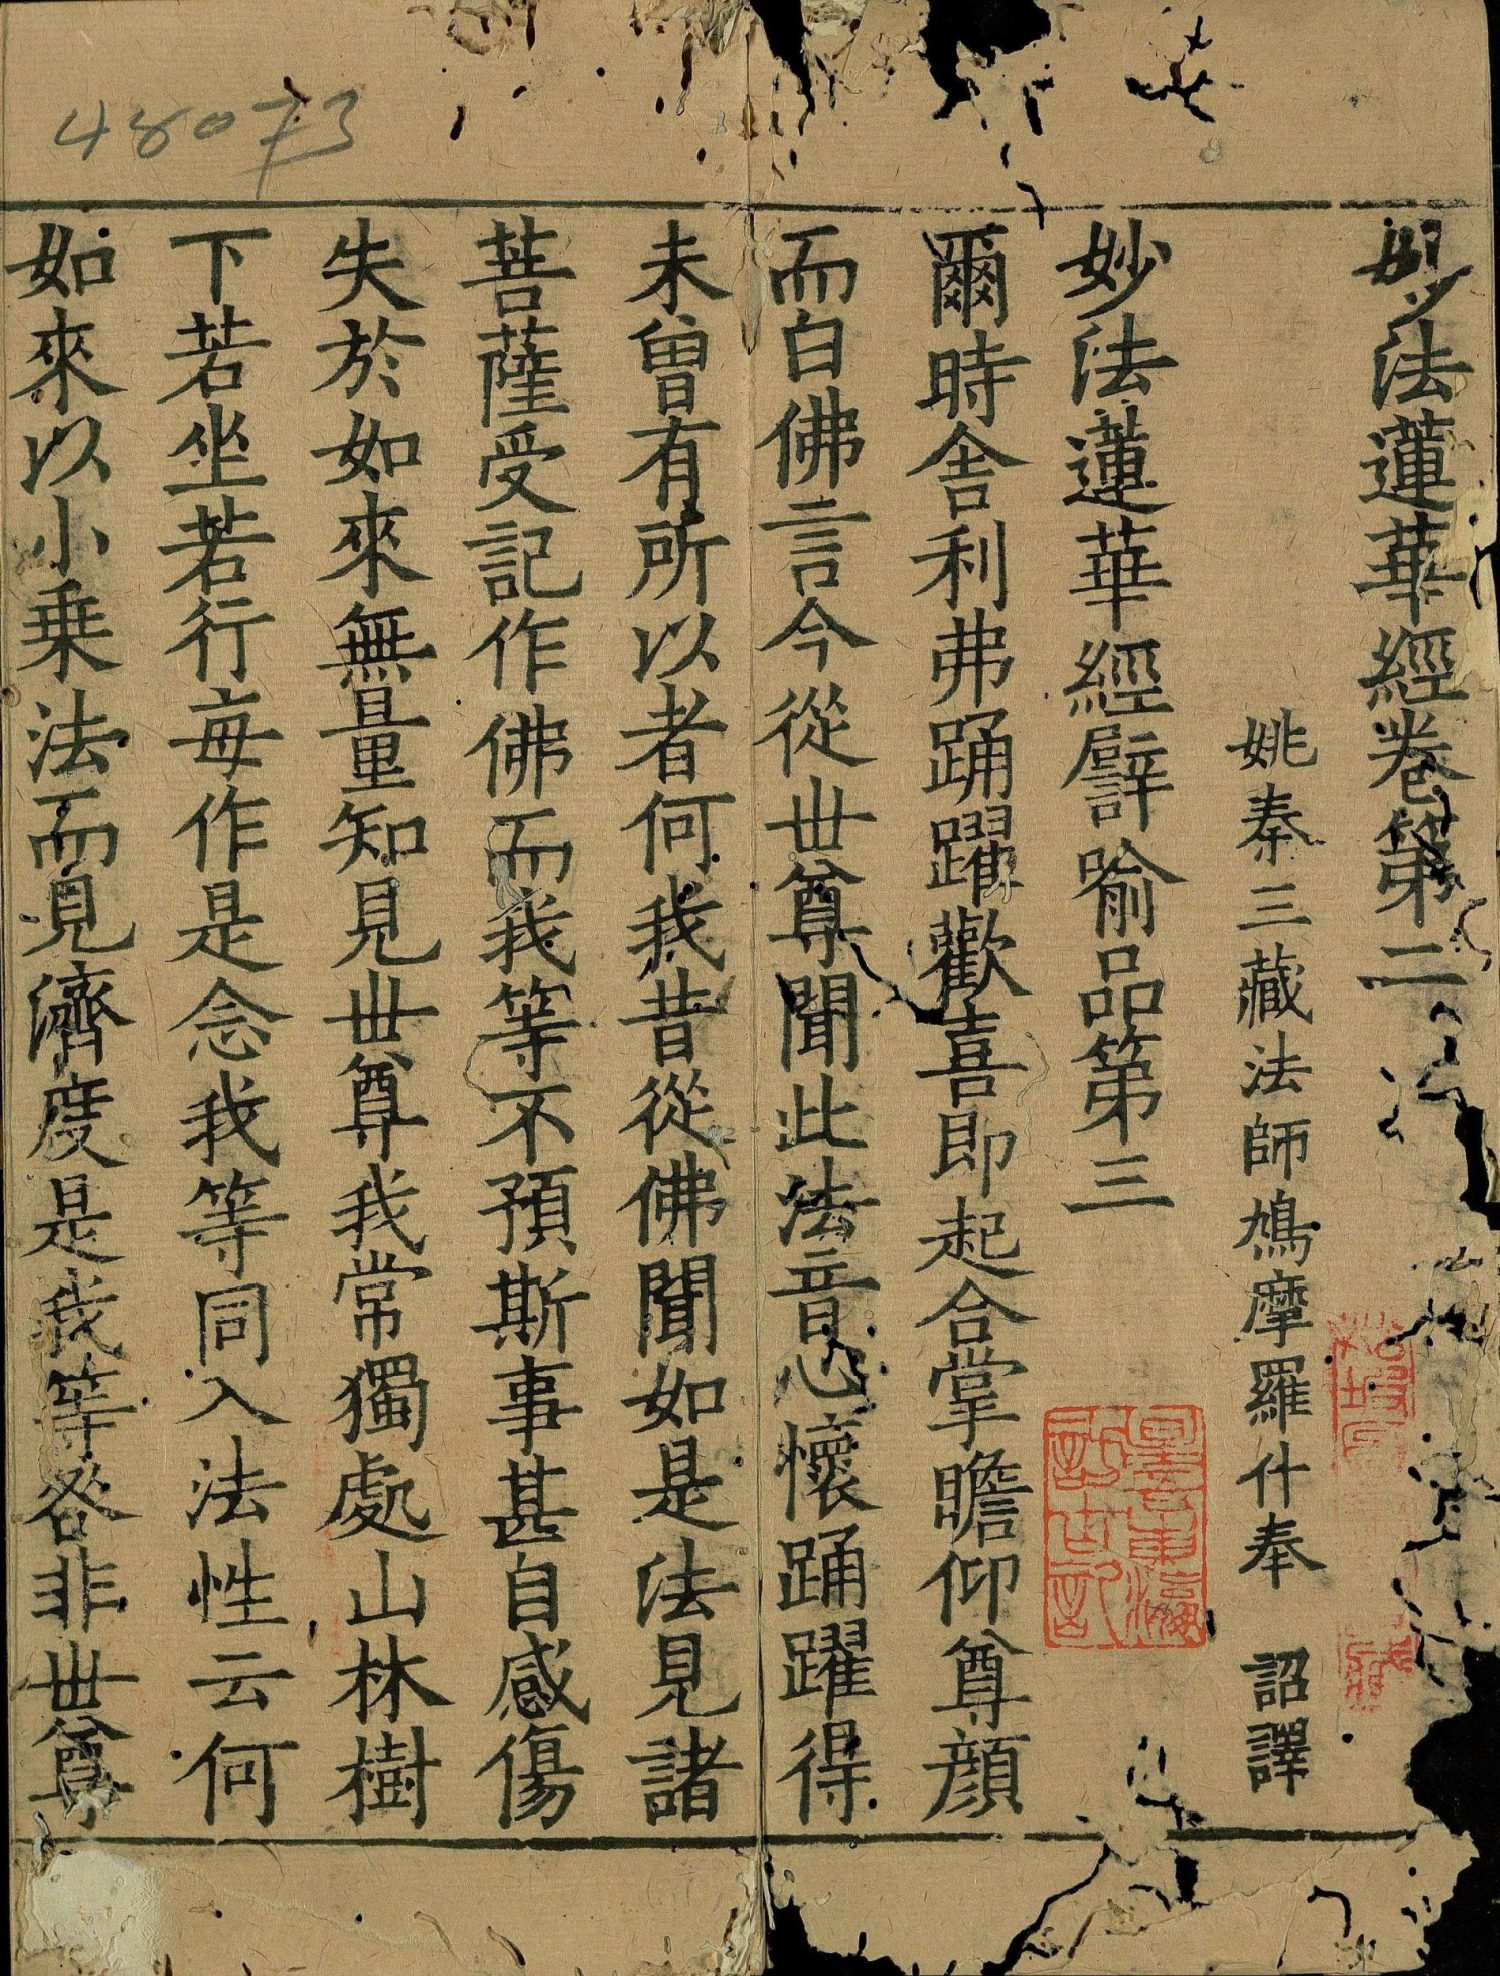 48073
妙法蓮華經卷第二
姚秦三藏法師鳩摩羅什奉 詔譯
妙法蓮華經譬喻品第三
爾時舍利弗踊躍歡喜即起合掌瞻仰尊顏
而白佛言今從世尊聞此法音心懷踊躍得
未曾有所以者何我昔從佛聞如是法見諸
菩薩受記作佛而我等不預斯事甚自感傷
失於如來無量知見世尊我常獨處山林樹
下若坐若行每作是念我等同入法性云何
如來以小乗法而見濟度是我等咎非世尊